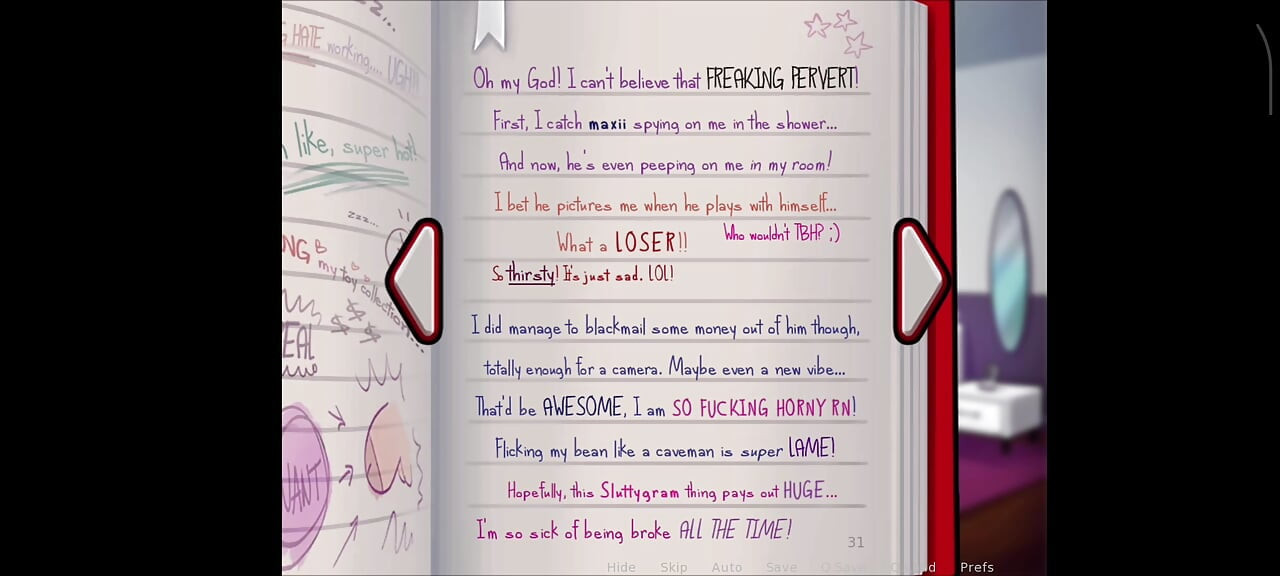 G HATE working.... UGH!!!
like, super hot!
zzz...
NG
my toy collection...
EAL
WANT
Oh my God! I can't believe that FREAKING PERVERT!
First, I catch maxii spying on me in the shower...
And now, he's even peeping on me in my room!
I bet he pictures me when he plays with himself...
What a LOSER!! Who wouldn't TBH? ;)
So thirsty! It's just sad. LOL!
I did manage to blackmail some money out of him though,
totally enough for a camera. Maybe even a new vibe...
That'd be AWESOME, I am SO FUCKING HORNY RN!
Flicking my bean like a caveman is super LAME!
Hopefully, this Sluttygram thing pays out HUGE...
I'm so sick of being broke ALL THE TIME!
31
Hide Skip Auto Save Q.Save Prefs